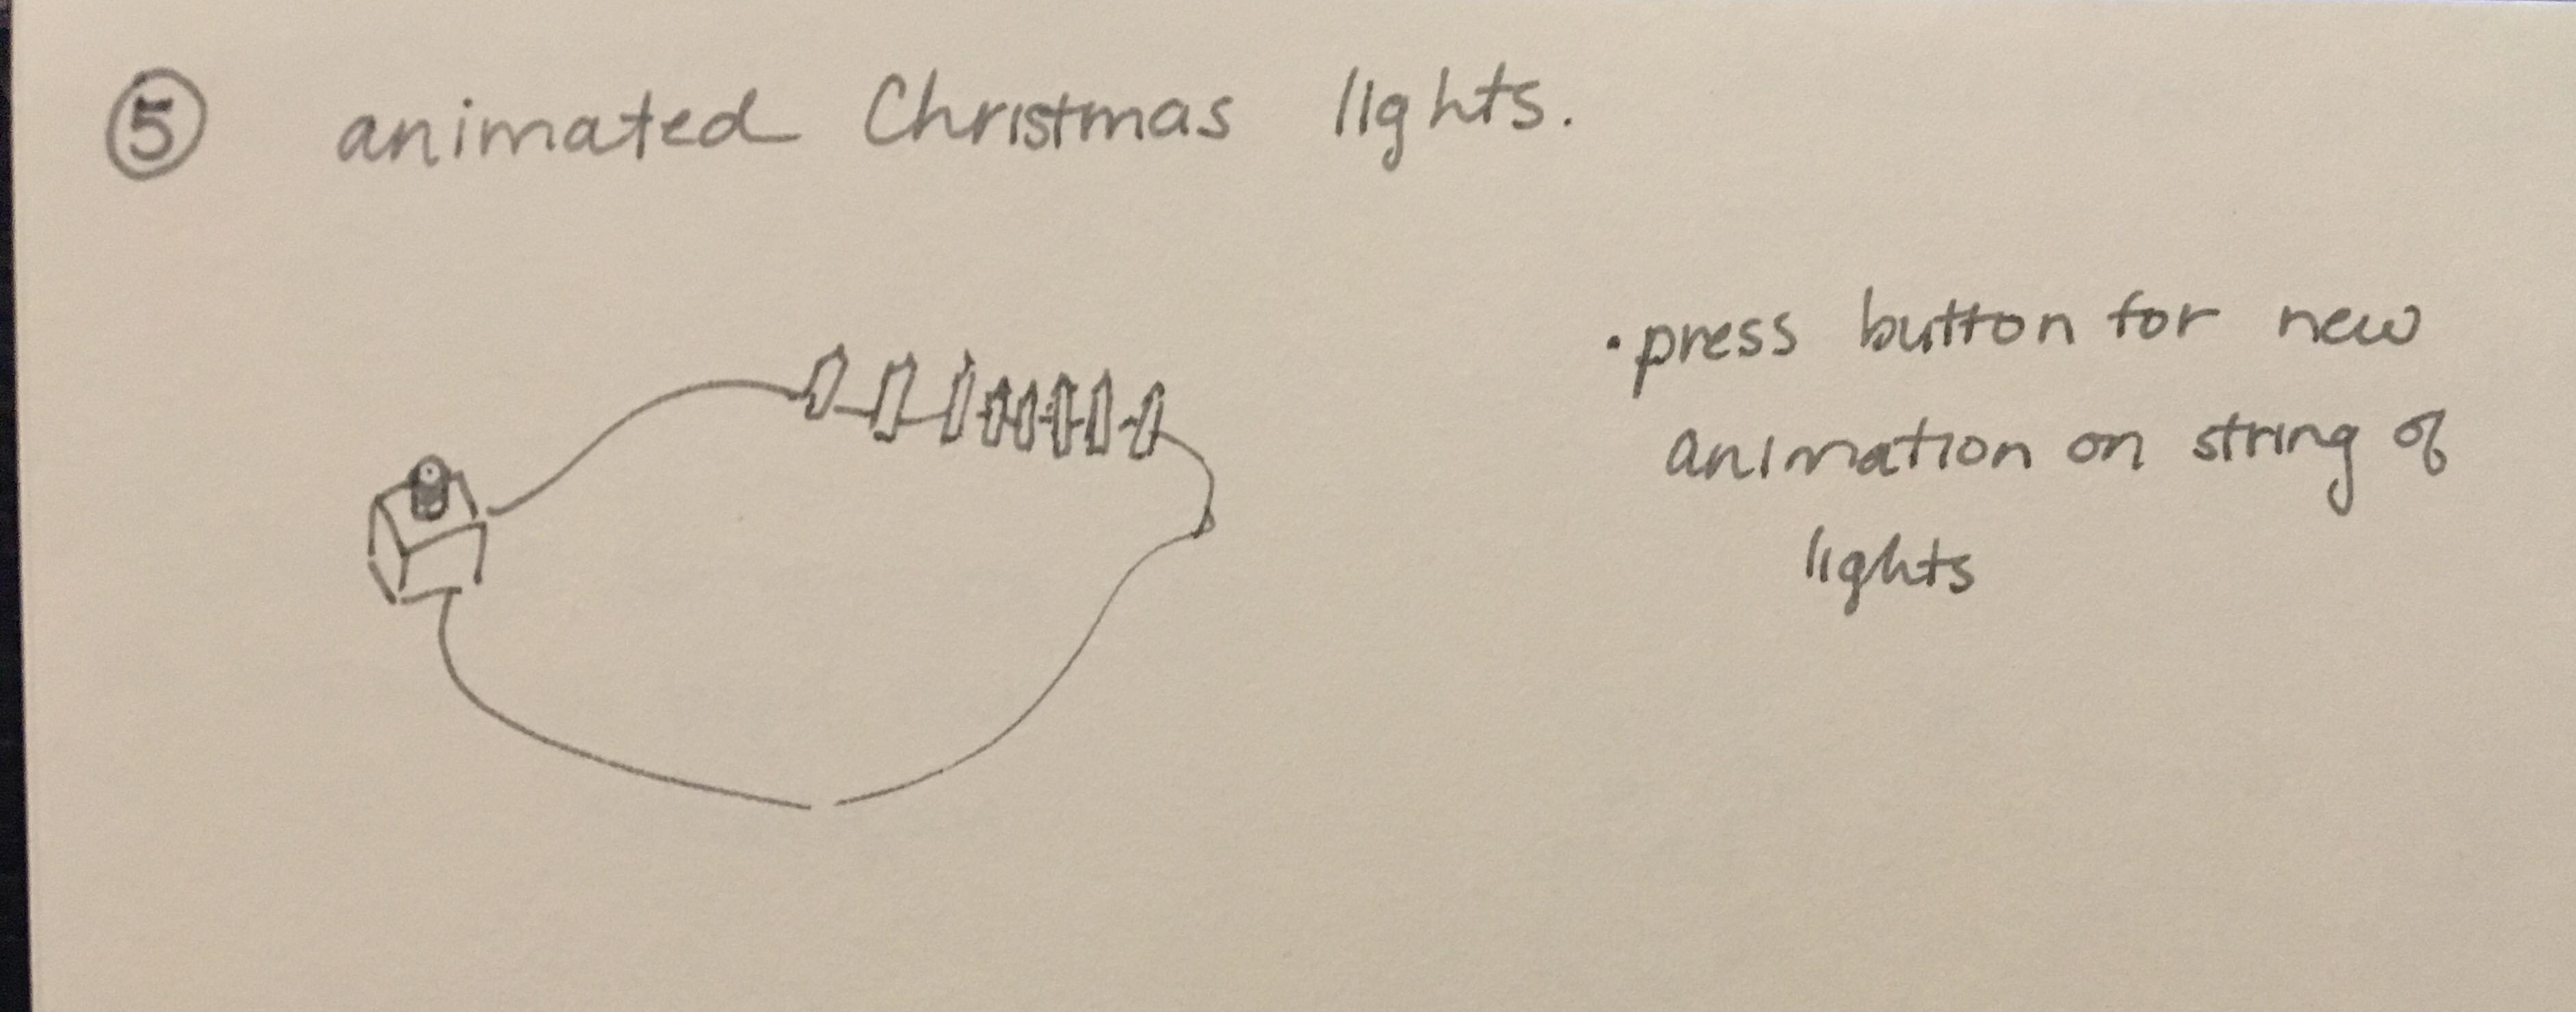 5 animated Christmas lights.
• press button for new
animation on string of
lights